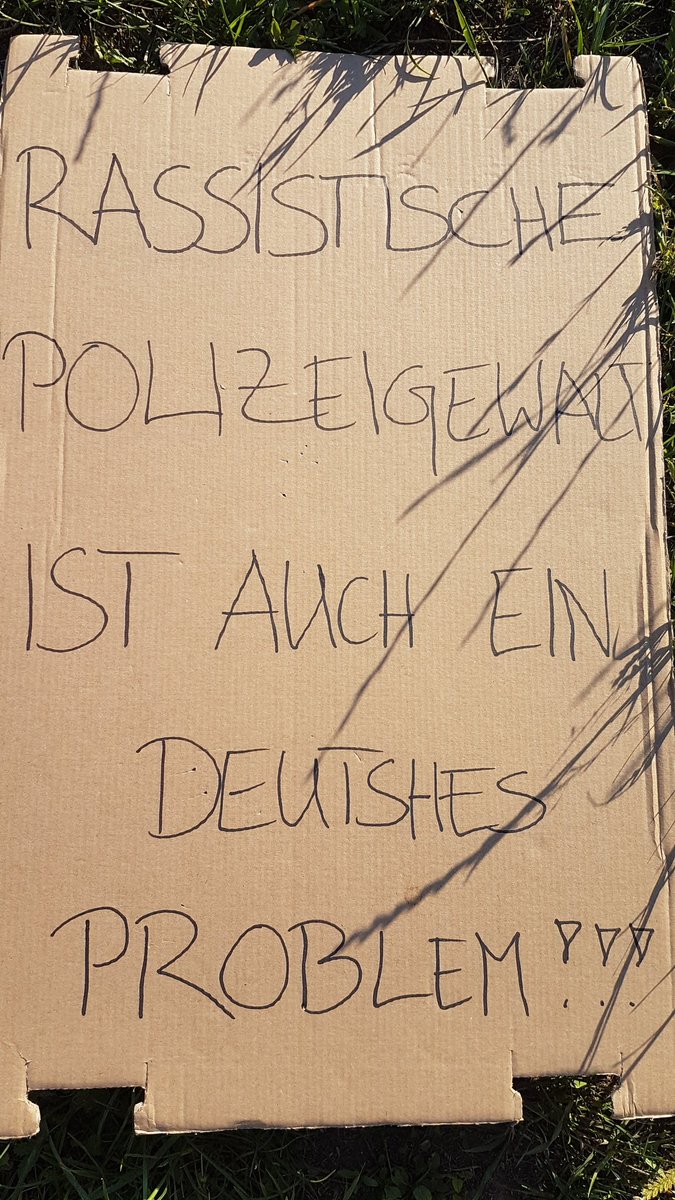 RASSISTISCHE
POLIZEIGEWALT
IST AUCH EIN
DEUTSHES
PROBLEM!!!